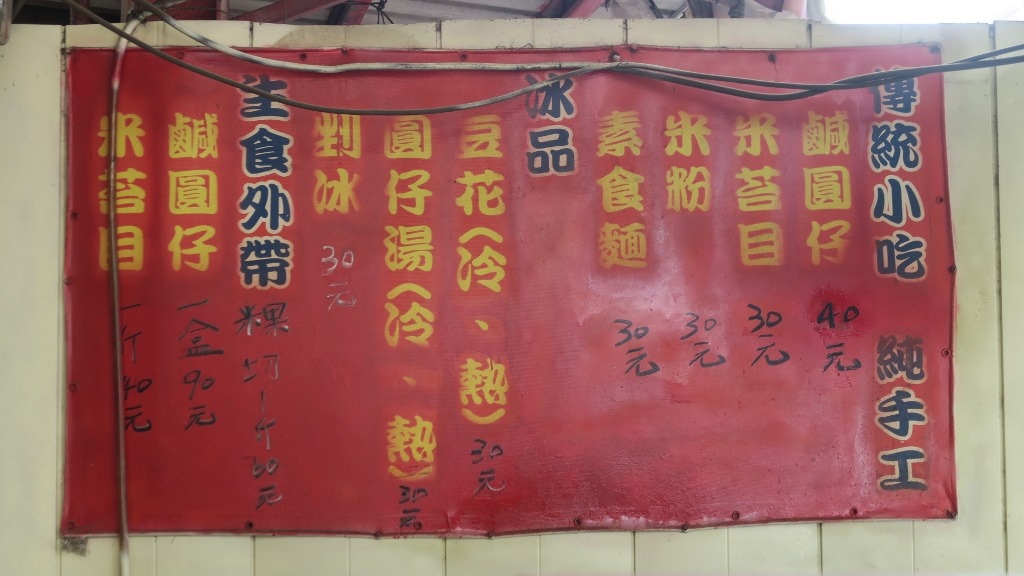 傳統小吃 純手工
鹹圓仔 40元
米苔目 30元
米粉 30元
素食麵 30元
冰品
豆花(冷、熱) 30元
圓仔湯(冷、熱) 30元
剉冰 30元
生食外帶
粿切一斤30元
鹹圓仔 一盒90元
米苔目 一斤40元